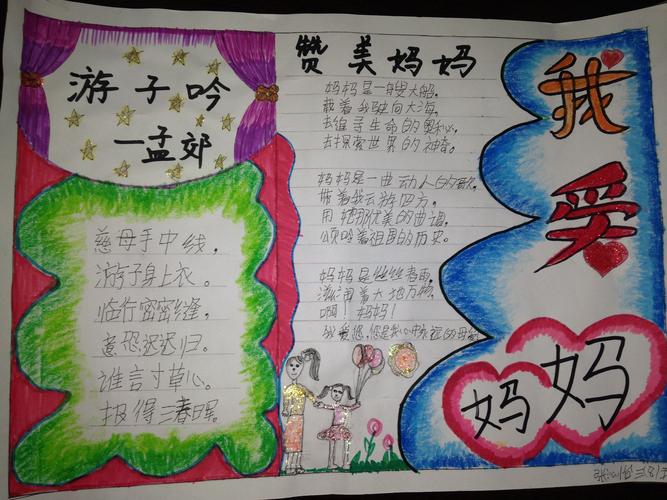 游子吟
一孟郊
慈母手中线，
游子身上衣。
临行密密缝，
意恐迟迟归。
谁言寸草心。
报得三春晖。
赞美妈妈
妈妈是一艘大船。
载着我驶向大海，
去追寻生命的奥秘。
去探索世界的神奇。
妈妈是一曲动人的歌。
带着我云游四方。
用那优美的曲调，
颂唱着祖国的历史。
妈妈是丝丝春雨，
滋润着大地万物。
啊！妈妈！
我爱您，您是我心中永远的母亲
我爱
妈妈